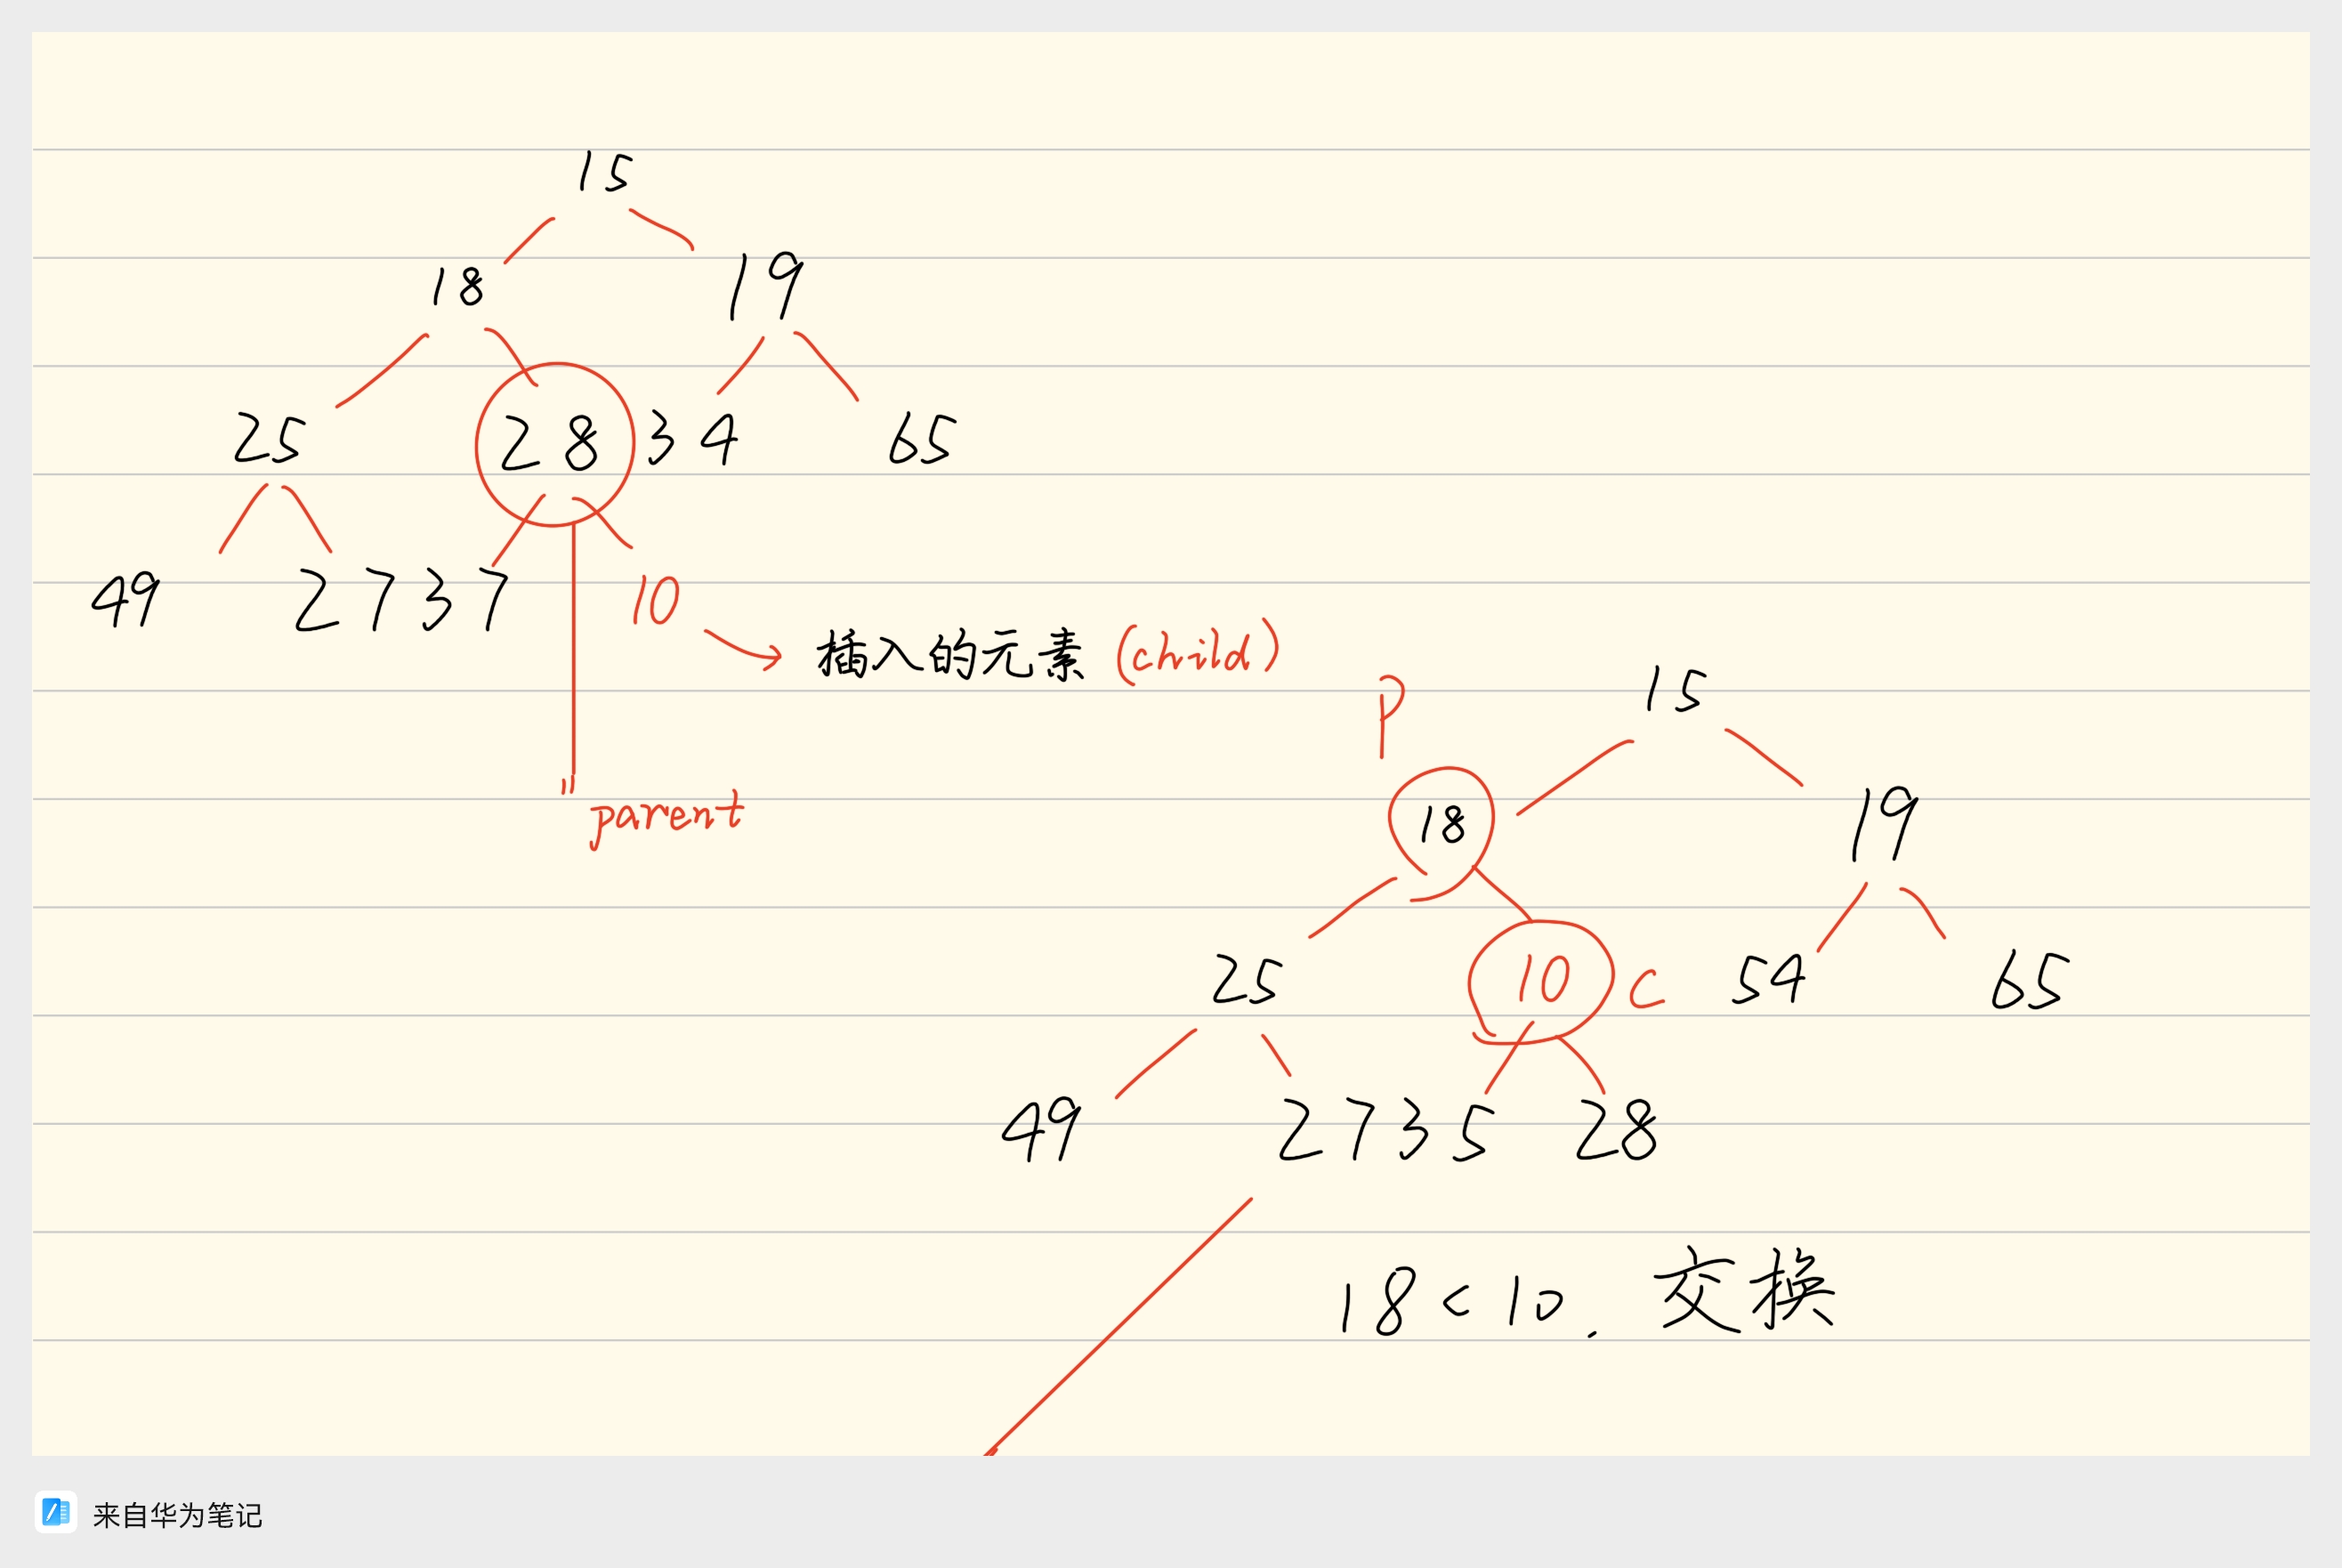 15
18 19
25 28 34 65
49 27 37 10
插入的元素 (child)
parent
P 15
18 19
25 10 C 54 65
49 27 35 28
18 < 10. 交换
来自华为笔记